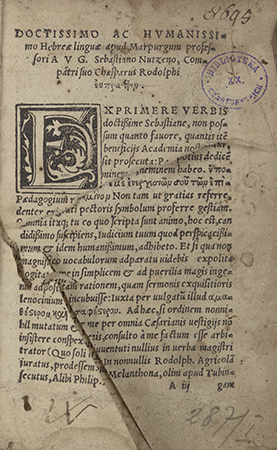 8695
DOCTISSIMO AC HVMANISSI
mo Hebreæ linguæ apud Marpurgum profes-
sori A V G. Sebastiano Nuzeno, Com
patri suo Chasparus Rodolphi
BIBLIOTECA
EXPRIMERE VERBIS
doctissime Sebastiane, non pos
sum quanto fauore, quantis ite
beneficijs Academia no
sit prosecuta: P dedice
neminem habeo.
Pædagogium Non tam ut gratias referre,
denter ati pectoris symbolum proferre gestiam.
omnia itaq; tu eo quo scripta sunt animo, hoc est, can
didissimo suscipiens, iudicium tuum quod perspicacissi
um & idem humanissimum, adhibeto. Et si qua non
magnifico uocabulorum adparatu uidebis expolita
me in simplicem & ad puerilia magis ingen
adposit rationem, quam sermonis exquisitioris
lenocinium incubuisse: iuxta per uulgatū illud
Ad hæc, si ordinem nonni
hil mutatum & me per omnia Cæsarianis uestigijs nō
insistere conspex consulto à me factum esse arbi
trator (Quo soli iuuentuti nullius in uerba magistri
iuratus, prodessem in nonnullis Rodolph. Agricolā
secutus, Alibi Philip. Melanthona, olim apud Tubin
A iij gam
287